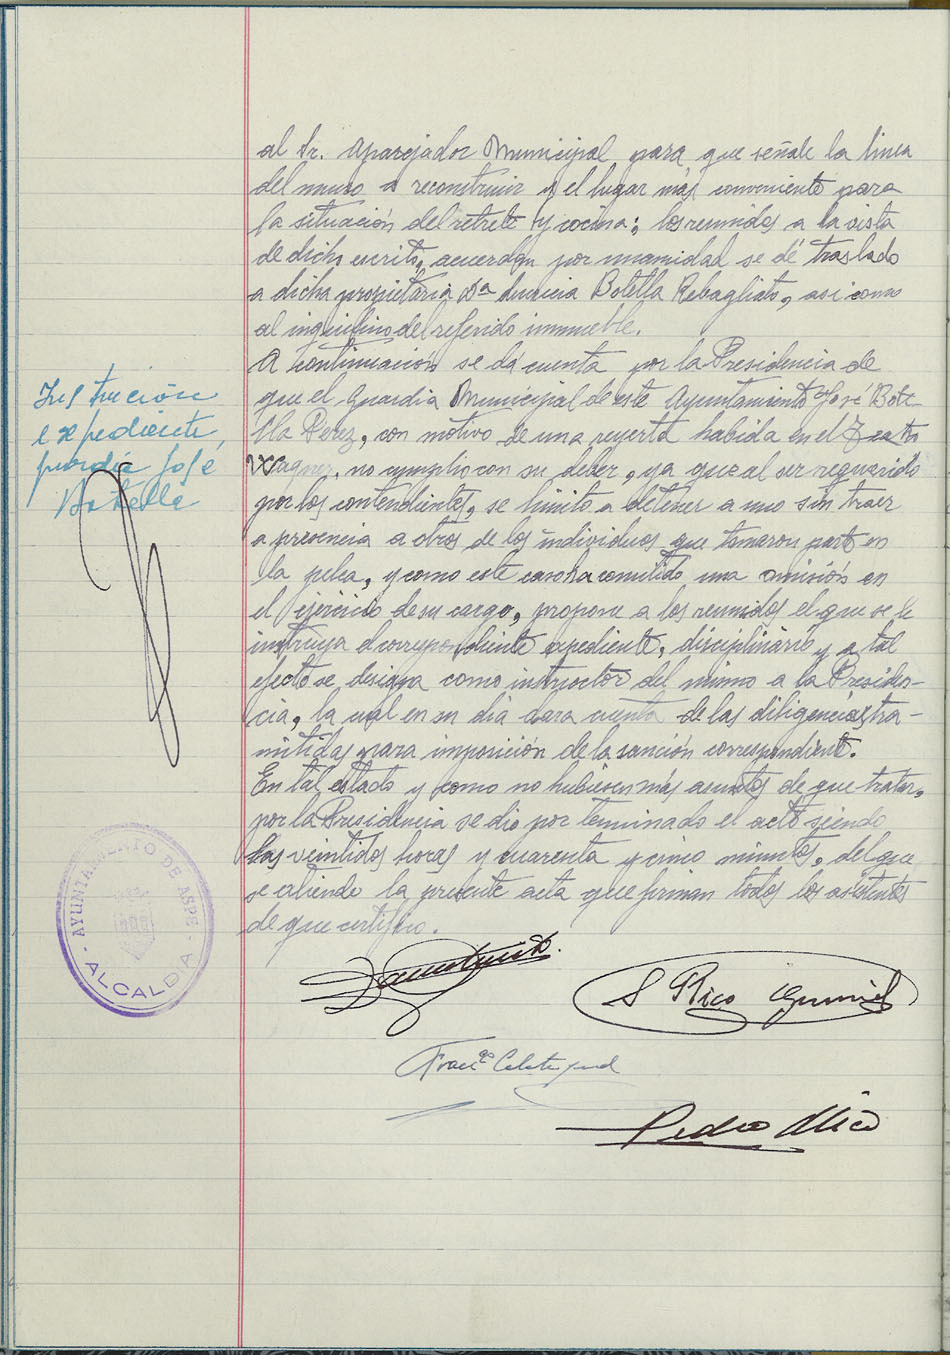 al Sr. Aparejador Municipal para que señale la linea
del muro a reconstruir y el lugar más conveniente para
la situación del retrete y cocina; los reunidos a la vista
de dicho escrito, acuerdan por unanimidad se dé traslado
a dicha propietaria Dª Botella Rebagliato, asi como
al inquilino del referido inmueble.
A continuación se dá cuenta por la Presidencia de
que el Guardia Municipal de este Ayuntamiento José Bote-
lla Perez, con motivo de una reyerta habida en el Teatro
Wagner, no cumplio con su deber, ya que al ser requerido
por los contendientes, se limito a detener a uno sin traer
a presencia a otros de los individuos que tomaron parte en
la pelea, y como este caso ha cometido una omisión en
el ejercicio de su cargo, propone a los reunidos el que se le
instruya el correspondiente expediente, disciplinario y a tal
efecto se designa como instructor del mismo a la Presiden-
cia, la cual en su dia dara cuenta de las diligencias tra-
mitidas para imposición de la sanción correspondiente.
En tal estado y como no hubiesen más asuntos de que tratar,
por la Presidencia se dio por terminado el acto siendo
las veintidos horas y cuarenta y cinco minutos, del que
se extiende la presente acta que firman todos los asistentes
de que certifico.
Instrucción
expediente,
guardia José
Botella
AYUNTAMIENTO DE ASPE
ALCALDIA
S Rico
Franco
Pedro Mico